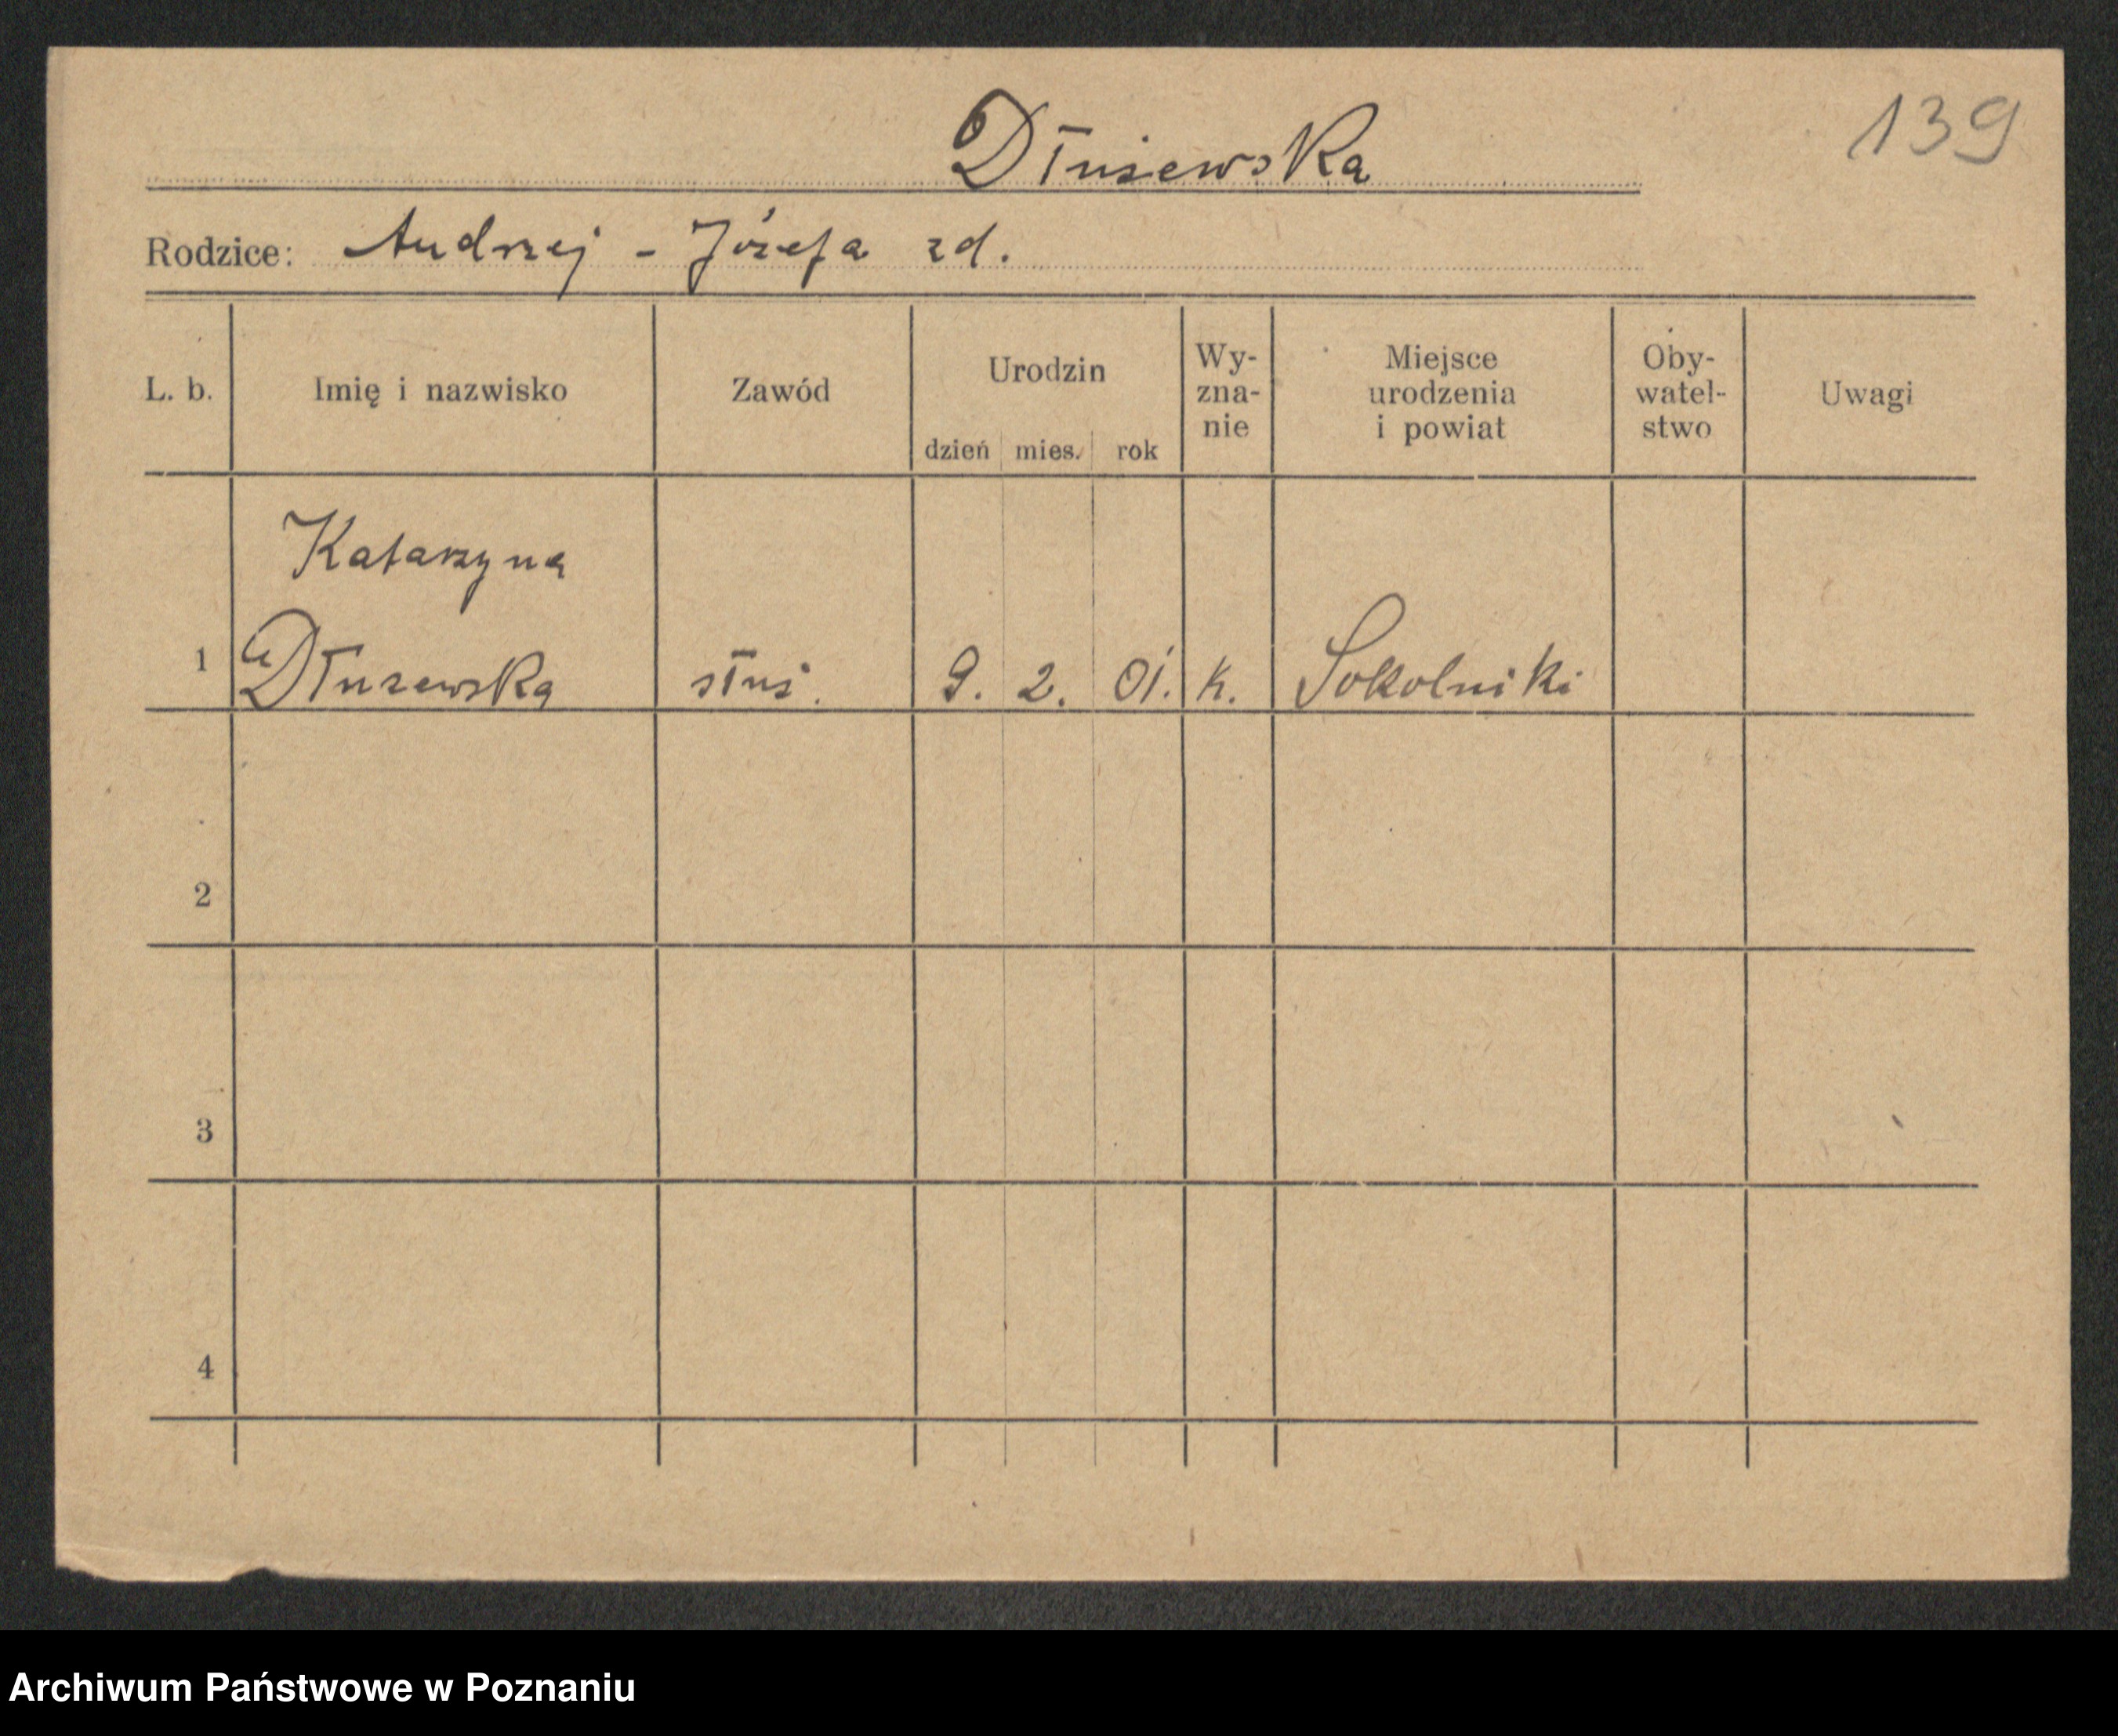 139
Dłużewska
Rodzice: Andrzej - Józefa zd.
L. b. Imię i nazwisko Zawód Urodzin dzień mies. rok Wy-zna-nie Miejsce urodzenia i powiat Oby-watel-stwo Uwagi
Katarzyna
1 Dłużewska służ. 9. 2. 01. k. Sokolniki
2
3
4
Archiwum Państwowe w Poznaniu